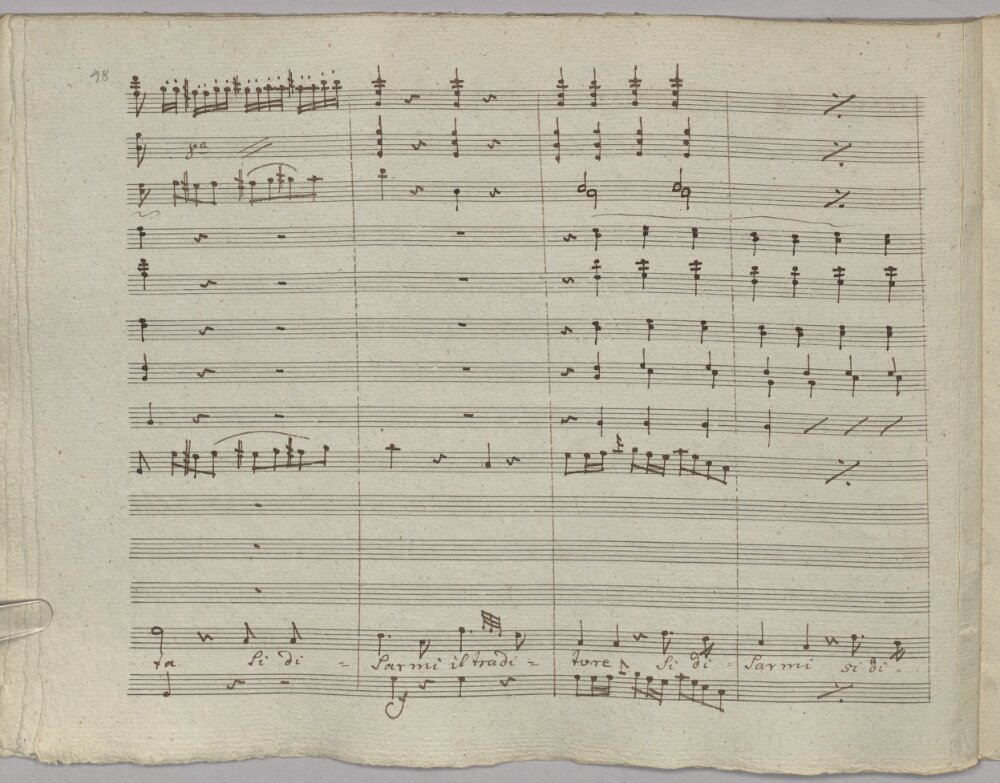 98
8va
ta Si di - Sarmi il tradi - tore Si di - Sarmi si di -
f